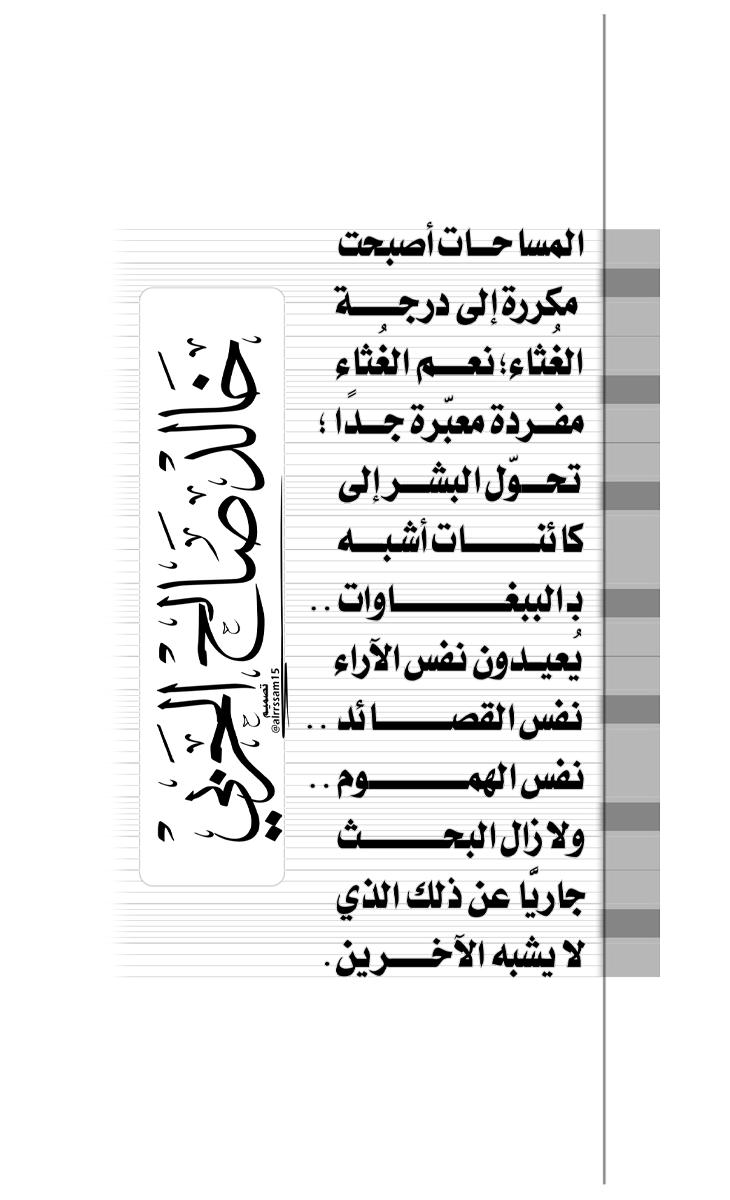 المساحات أصبحت
مكررة إلى درجة
الغُثاء؛ نعم الغُثاء
مفردة معبّرة جدًا ؛
تحوّل البشر إلى
كائنات أشبه
بـ الببغاوات ..
يُعيدون نفس الآراء
نفس القصائد ..
نفس الهموم ..
ولا زال البحث
جاريًّا عن ذلك الذي
لا يشبه الآخرين .
خالد صالح الحربي
تصميم
@alrrssam15